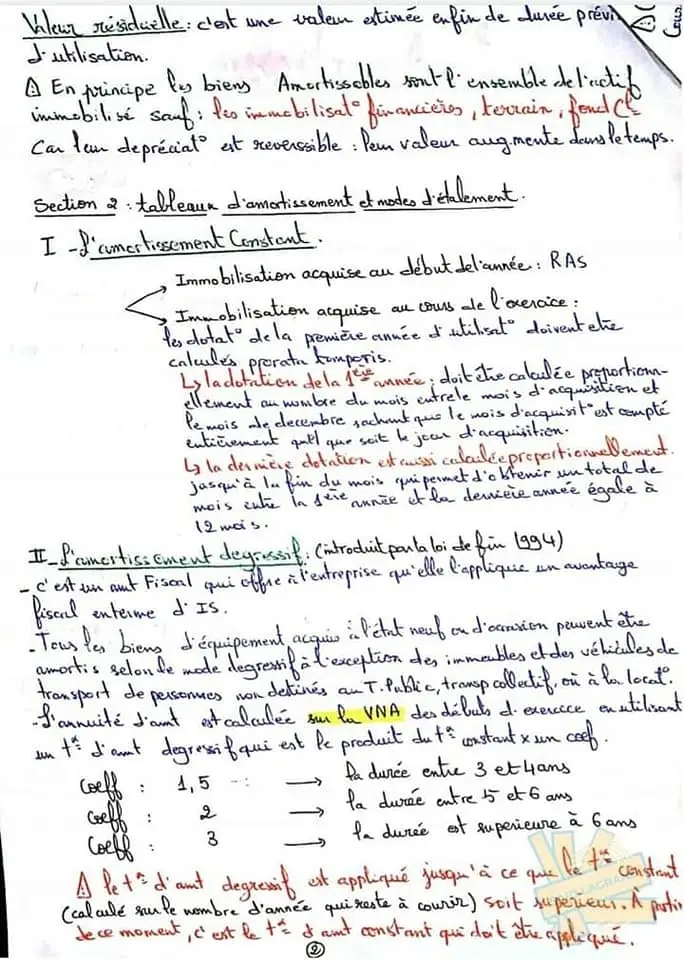 Valeur résiduelle : c'est une valeur estimée en fin de durée prévi
d'utilisation.
⚠ En principe les biens Amortissables sont l'ensemble de l'actif
immobilisé sauf : les immobilisat° financières, terrain, fond C^l
Car leur depréciat° est reverssible : leur valeur augmente dans le temps.
Section 2 : tableaux d'amortissement et modes d'étalement.
I - L'amortissement Constant.
→ Immobilisation acquise au début de l'année : RAS
→ Immobilisation acquise au cours de l'exercice :
les dotat° de la première année d'utilisat° doivent etre
calculés prorata temporis.
↳ la dotation de la 1ère année : doit être calculée proportionn-
ellement au nombre du mois entre le mois d'acquisition et
le mois de decembre sachant que le mois d'acquisit° est compté
entièrement quel que soit le jour d'acquisition.
↳ la dernière dotation est aussi calculée proportionnellement.
jusqu'à la fin du mois qui permet d'obtenir un total de
mois entre la 1ère année et la dernière année égale à
12 mois.
II - L'amortissement degressif : (introduit par la loi de fin 1994)
- C'est un amt Fiscal qui offre à l'entreprise qu'elle l'applique un avantage
fiscal en terme d'IS.
- Tous les biens d'équipement acquis à l'état neuf ou d'occasion peuvent être
amortis selon le mode degressif à l'exception des immeubles et des véhicules de
transport de personnes non detinés au T. Public, transp collectif, où à la locat°.
- L'annuité d'amt est calculée sur la VNA des débuts d'exercce en utilisant
un t^x d'amt degressif qui est le produit du t^x constant x un coef.
Coeff : 1,5 → la durée entre 3 et 4 ans
Coeff : 2 → la durée entre 5 et 6 ans
Coeff : 3 → la durée est superieure à 6 ans
⚠ le t^x d'amt degressif est appliqué jusqu'à ce que le t^x constant
(calculé sur le nombre d'année qui reste à courir) soit superieur. À partir
de ce moment, c'est le t^x d'amt constant qui doit être appliqué.
2